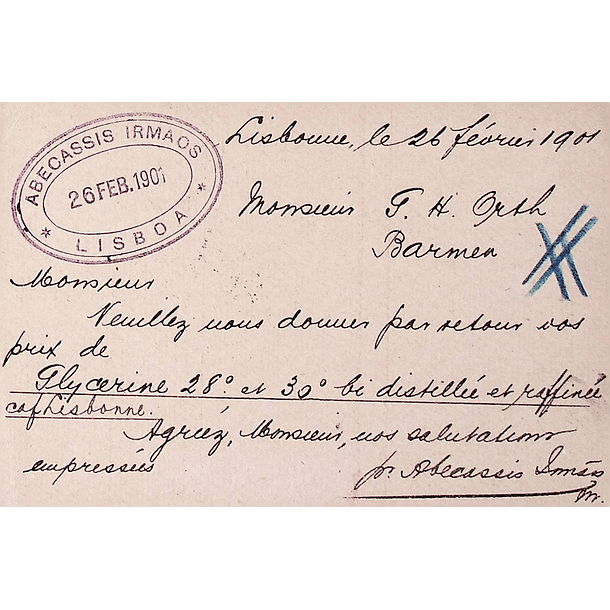 ABECASSIS IRMAOS
26 FEB. 1901
* LISBOA *
Lisbonne, le 26 février 1901
Monsieur F. H. Orth
Barmen
Monsieur
Veuillez nous donner par retour vos
prix de
Glycerine 28° et 30° bi distillée et raffinée
caf Lisbonne.
Agréez, Monsieur, nos salutations
empressées
pr. Abecassis Irmãos